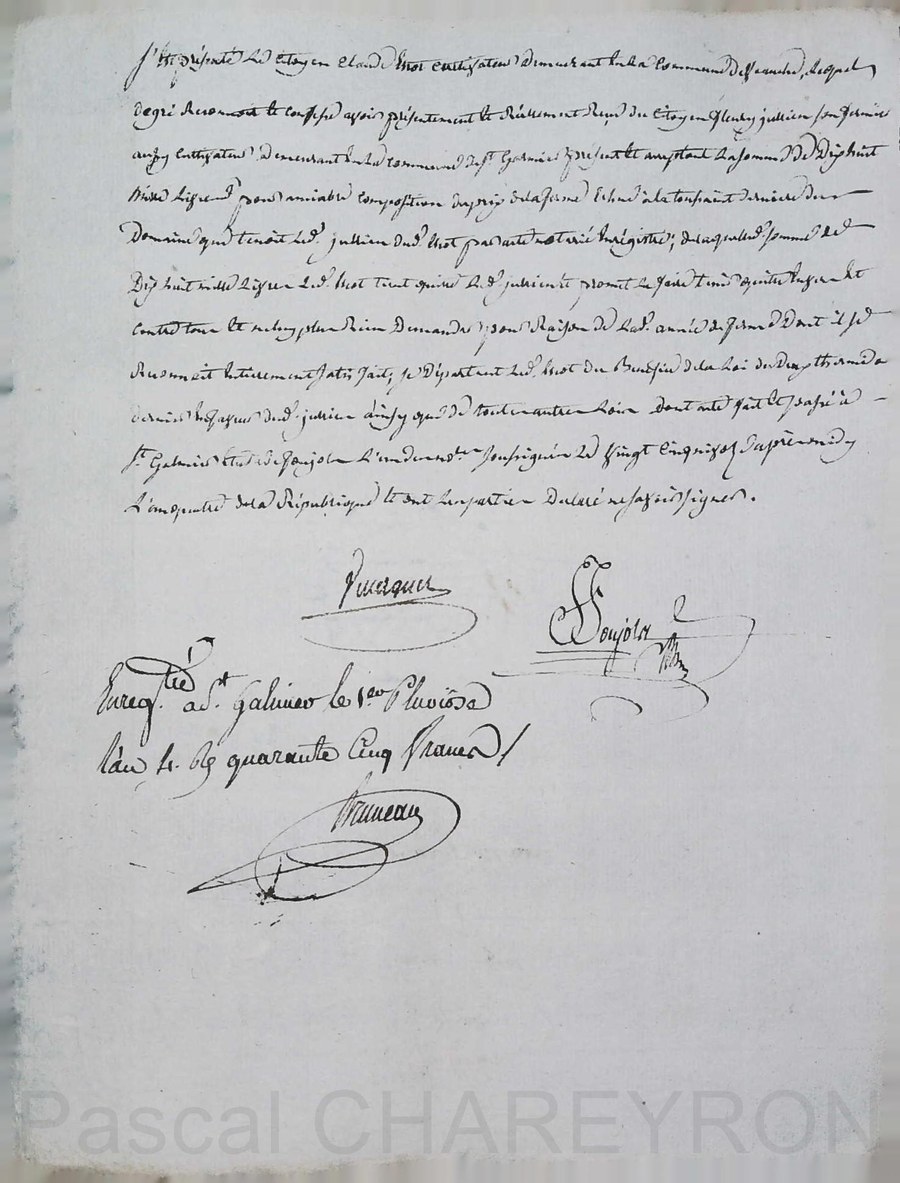 S'est présenté le Citoyen Claude cultivateur demeurant en la Commune de lequel
de gré Reconnoit et confesse avoir présentement et Réellement Reçu du Citoyen fleury jullien son fermier
aussy Cultivateur demeurant en la commune de St. Galmier présent et acceptant la somme de Dix huit
mille Livres pour amiable composition du prix de la ferme Echue à la toussaint derniere du
Domaine que tenoit led. jullien dud. par acte notarié Enregistré; de laquelle somme de
Dix huit mille Livres led. tient quitte led. jullien et promet le faire tenir quitte Envers et
contre tous et ne luy plus Rien Demander pour Raison de lad. année de ferme Dont il se
Reconnoit Entierement satisfait, se Départant led. du Benefice de la Loi du Deux thermidor
dernier En faveur dud. jullien ainsy que de toutes autres Loix Dont acte fait et passé à
St. Galmier Etude de Ponjols L'un des nores. soussignés Le Vingt Cinq nivose après midy
L'an quatre de la République et ont Les parties Declaré ne savoir signer.
Ponjols
Enregtré. à St. Galmier le 1er Pluviôse
l'an 4. R§ quarante Cinq francs /
Bruneau
Pascal CHAREYRON